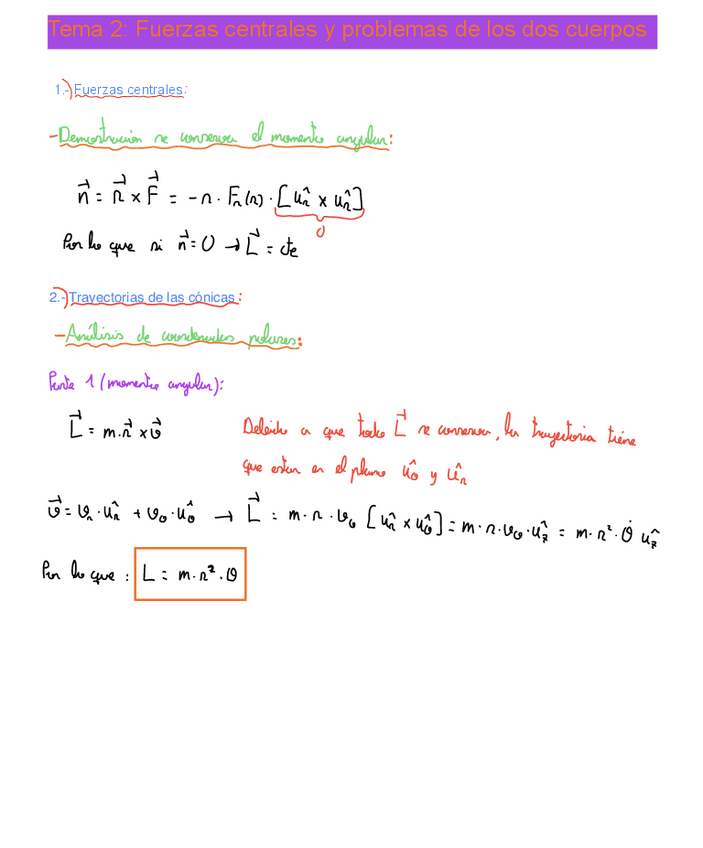 Tema 2: Fuerzas centrales y problemas de los dos cuerpos
1.-) Fuerzas centrales:
- Demostración se conserva el momento angular:
n⃗ = r⃗ × F⃗ = -r · Fr(r) · [ûr × ûr]
0
Por lo que si n⃗ = 0 → L⃗ = cte
2.-) Trayectorias de las cónicas:
- Análisis de coordenadas polares:
Parte 1 (momento angular):
L⃗ = m · r⃗ × v⃗
Debido a que todo L⃗ se conserva, la trayectoria tiene
que estar en el plano ûθ y ûr
v⃗ = vr · ûr + vθ · ûθ → L⃗ = m · r · vθ [ûr × ûθ] = m · r · vθ · ûz = m · r² · θ̇ ûz
Por lo que : L = m · r² · θ